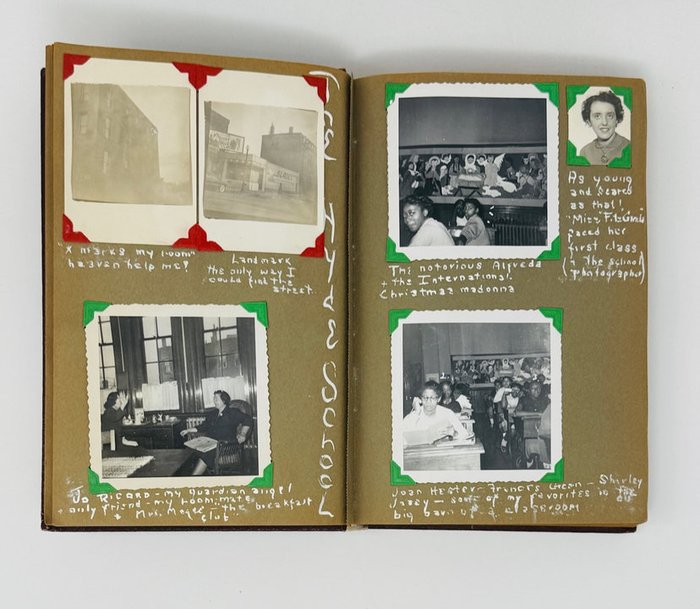 "X marks my room"
heaven help me!
Landmark
the only way I
could find the
street.
Jo RICARD - my guardian angel
only friend - my room-mate
+ Mrs. "the breakfast
club"
The notorious Alfreda
+ the International
Christmas madonna
As young
and scared
as that!
"Miss Fitz
faced her
first class
(+ the school
photographer)
Joan Hester - Frances Green - Shirley
- some of my favorites in the
big barn of a classroom